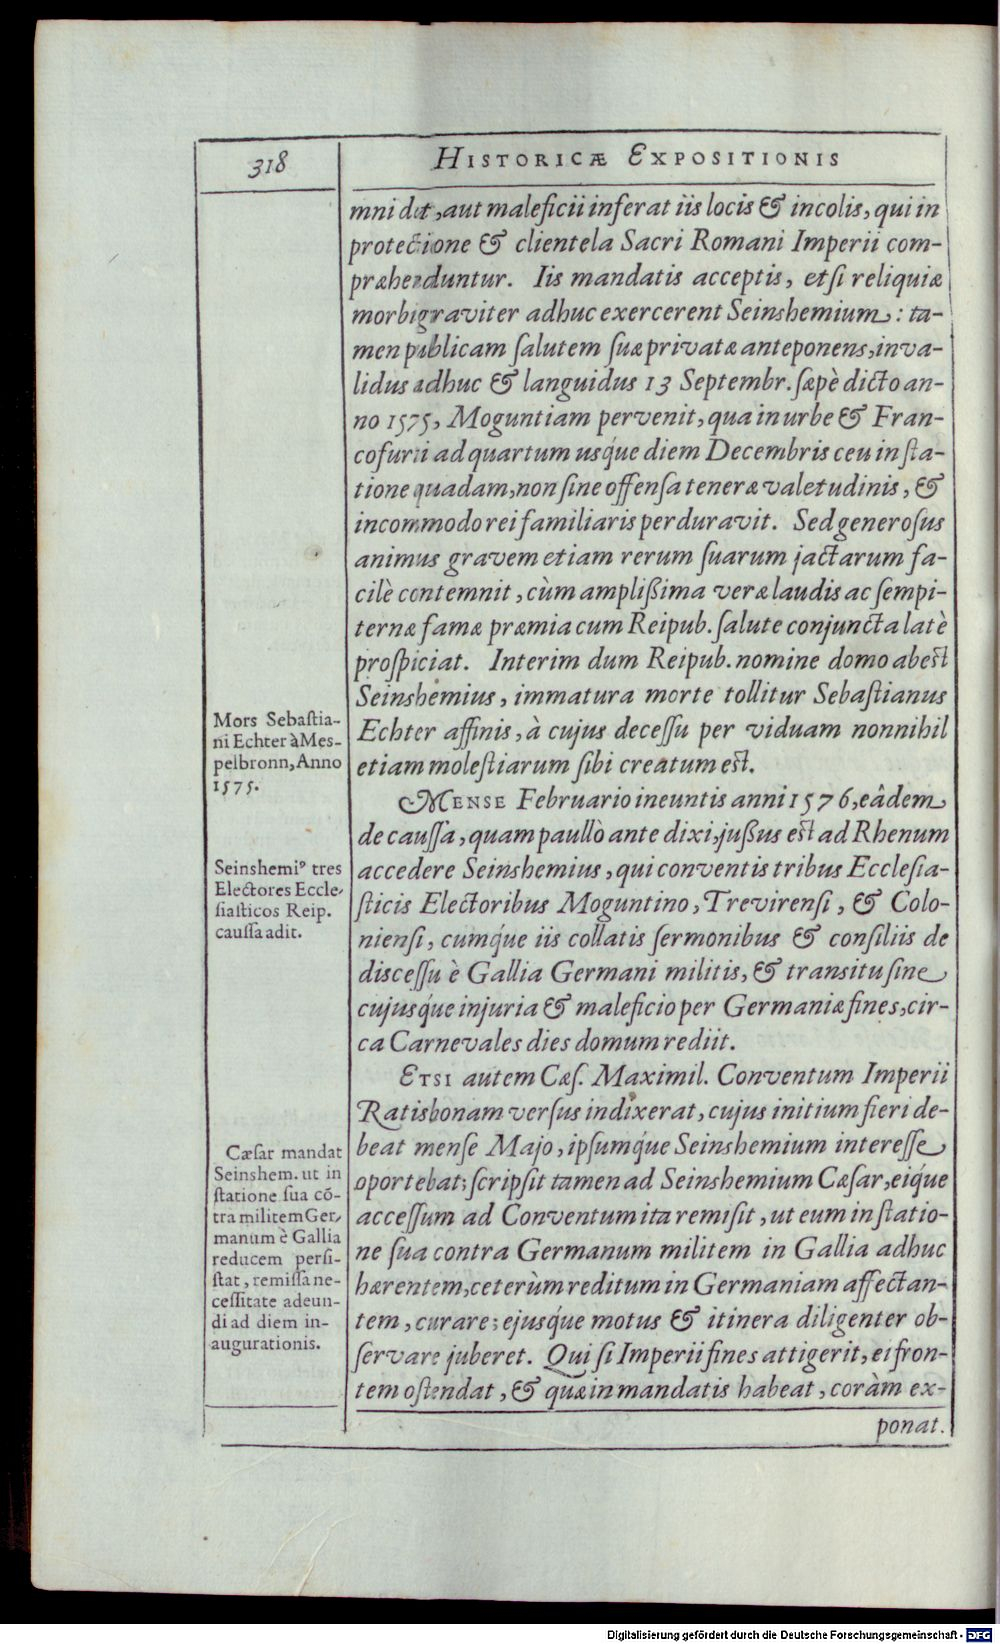 318
HISTORICÆ EXPOSITIONIS
mni det, aut maleficii inferat iis locis & incolis, qui in
protectione & clientela Sacri Romani Imperii com-
præhenduntur. Iis mandatis acceptis, etsi reliquiæ
morbi graviter adhuc exercerent Seinshemium: ta-
men publicam salutem suæ privatæ anteponens, inva-
lidus adhuc & languidus 13 Septembr. sæpè dicto an-
no 1575, Moguntiam pervenit, qua in urbe & Fran-
cofurti ad quartum usq́ue diem Decembris ceu in sta-
tione quadam, non sine offensa teneræ valetudinis, &
incommodo rei familiaris perduravit. Sed generosus
animus gravem etiam rerum suarum jactarum fa-
cilè contemnit, cùm amplißima veræ laudis ac sempi-
ternæ famæ præmia cum Reipub. salute conjuncta latè
prospiciat. Interim dum Reipub. nomine domo abest
Seinshemius, immatura morte tollitur Sebastianus
Echter affinis, à cujus decessu per viduam nonnihil
etiam molestiarum sibi creatum est.
Mors Sebastia-
ni Echter à Mes-
pelbronn, Anno
1575.
MENSE Februario ineuntis anni 1576, eâdem
de caussa, quam paullò ante dixi, jußus est ad Rhenum
accedere Seinshemius, qui conventis tribus Ecclesia-
sticis Electoribus Moguntino, Trevirensi, & Colo-
niensi, cumq́ue iis collatis sermonibus & consiliis de
discessu è Gallia Germani militis, & transitu sine
cujusq́ue injuria & maleficio per Germaniæ fines, cir-
ca Carnevales dies domum rediit.
Seinshemiꝰ tres
Electores Eccle-
siasticos Reip.
caussa adit.
ETSI autem Cæs. Maximil. Conventum Imperii
Ratisbonam versus indixerat, cujus initium fieri de-
beat mense Majo, ipsumq́ue Seinshemium interesse
oportebat; scripsit tamen ad Seinshemium Cæsar, eiq́ue
accessum ad Conventum ita remisit, ut eum in statio-
ne sua contra Germanum militem in Gallia adhuc
hærentem, ceterùm reditum in Germaniam affectan-
tem, curare; ejusq́ue motus & itinera diligenter ob-
servare juberet. Qui si Imperii fines attigerit, ei fron-
tem ostendat, & quæ in mandatis habeat, coràm ex-
Cæsar mandat
Seinshem. ut in
statione sua cō-
tra militem Ger-
manum è Gallia
reducem persi-
stat, remissa ne-
cessitate adeun-
di ad diem in-
augurationis.
ponat.
Digitalisierung gefördert durch die Deutsche Forschungsgemeinschaft - DFG